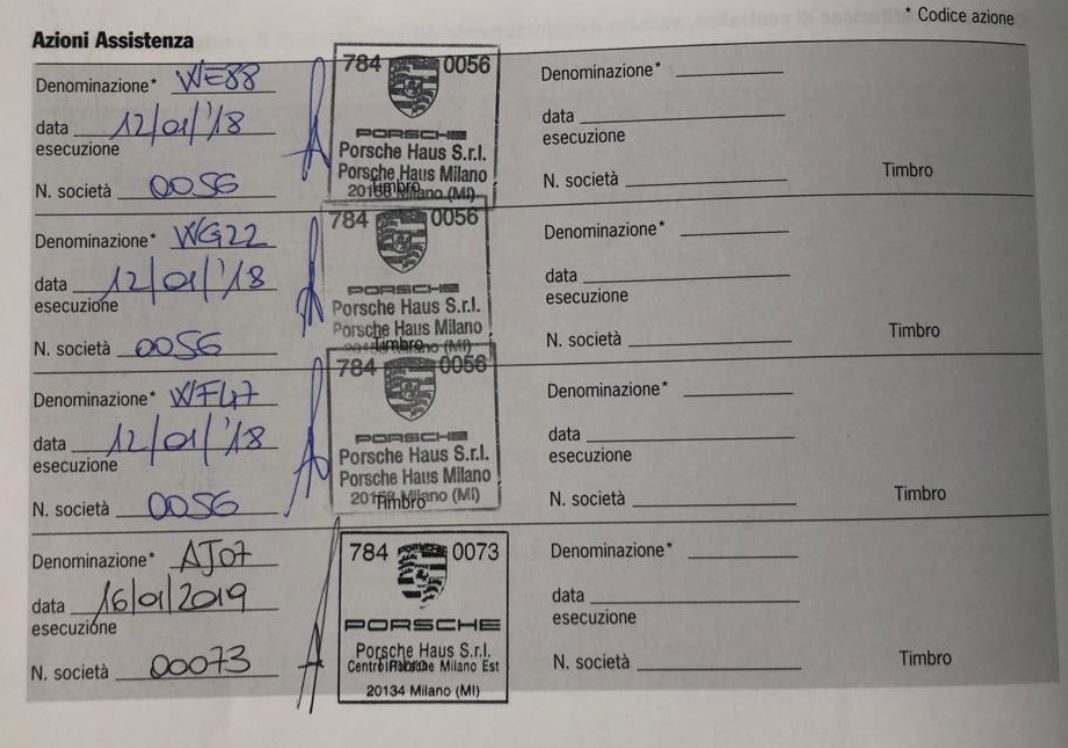 * Codice azione
Azioni Assistenza
Denominazione* WE88
data 12/01/'18
esecuzione
N. società 0056
784 0056
PORSCHE
Porsche Haus S.r.l.
Porsche Haus Milano
20158 Milano (MI)
Timbro
Denominazione*
data
esecuzione
N. società
Timbro
Denominazione* WG22
data 12/01/'18
esecuzione
N. società 0056
784 0056
PORSCHE
Porsche Haus S.r.l.
Porsche Haus Milano
20158 Milano (MI)
Timbro
Denominazione*
data
esecuzione
N. società
Timbro
Denominazione* WF47
data 12/01/'18
esecuzione
N. società 0056
784 0056
PORSCHE
Porsche Haus S.r.l.
Porsche Haus Milano
20158 Milano (MI)
Timbro
Denominazione*
data
esecuzione
N. società
Timbro
Denominazione* AJ07
data 16/01/2019
esecuzione
N. società 00073
784 0073
PORSCHE
Porsche Haus S.r.l.
Centro Porsche Milano Est
Timbro
20134 Milano (MI)
Denominazione*
data
esecuzione
N. società
Timbro